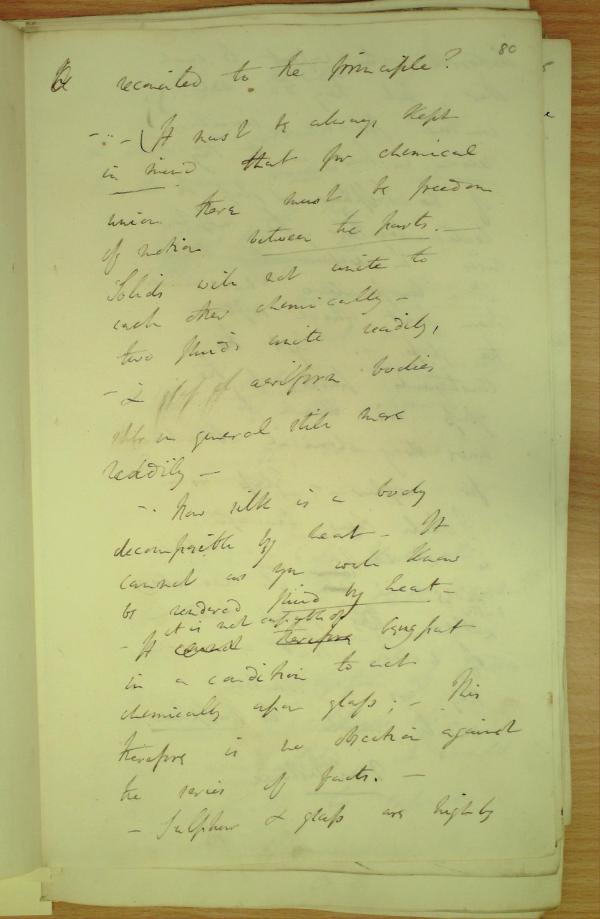 80
Be reconciled to the principle?
- .. - (It must be always kept
in mind that for chemical
union there must be freedom
of motion between the parts. -
Solids will not unite to
each other chemically -
two fluids unite readily,
- & aeriform bodies
in general still more
readily -
- . Now silk is a body
decomposible by heat - It
cannot as you well know
be rendered fluid by heat -
it is not capable of
- It cannot therefore being put
in a condition to act
chemically upon glass; - This
therefore is no objection against
the series of facts. -
- Sulphur & glass are highly